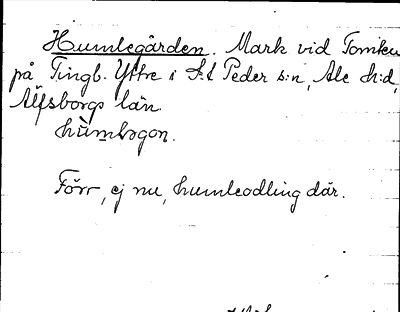 Humlegården. Mark vid Tomten
på Tingb. Yttre i S:t Peder s:n, Ale h:d,
Älfsborgs län.
hùmlogon.
Förr, ej nu, humleodling där.